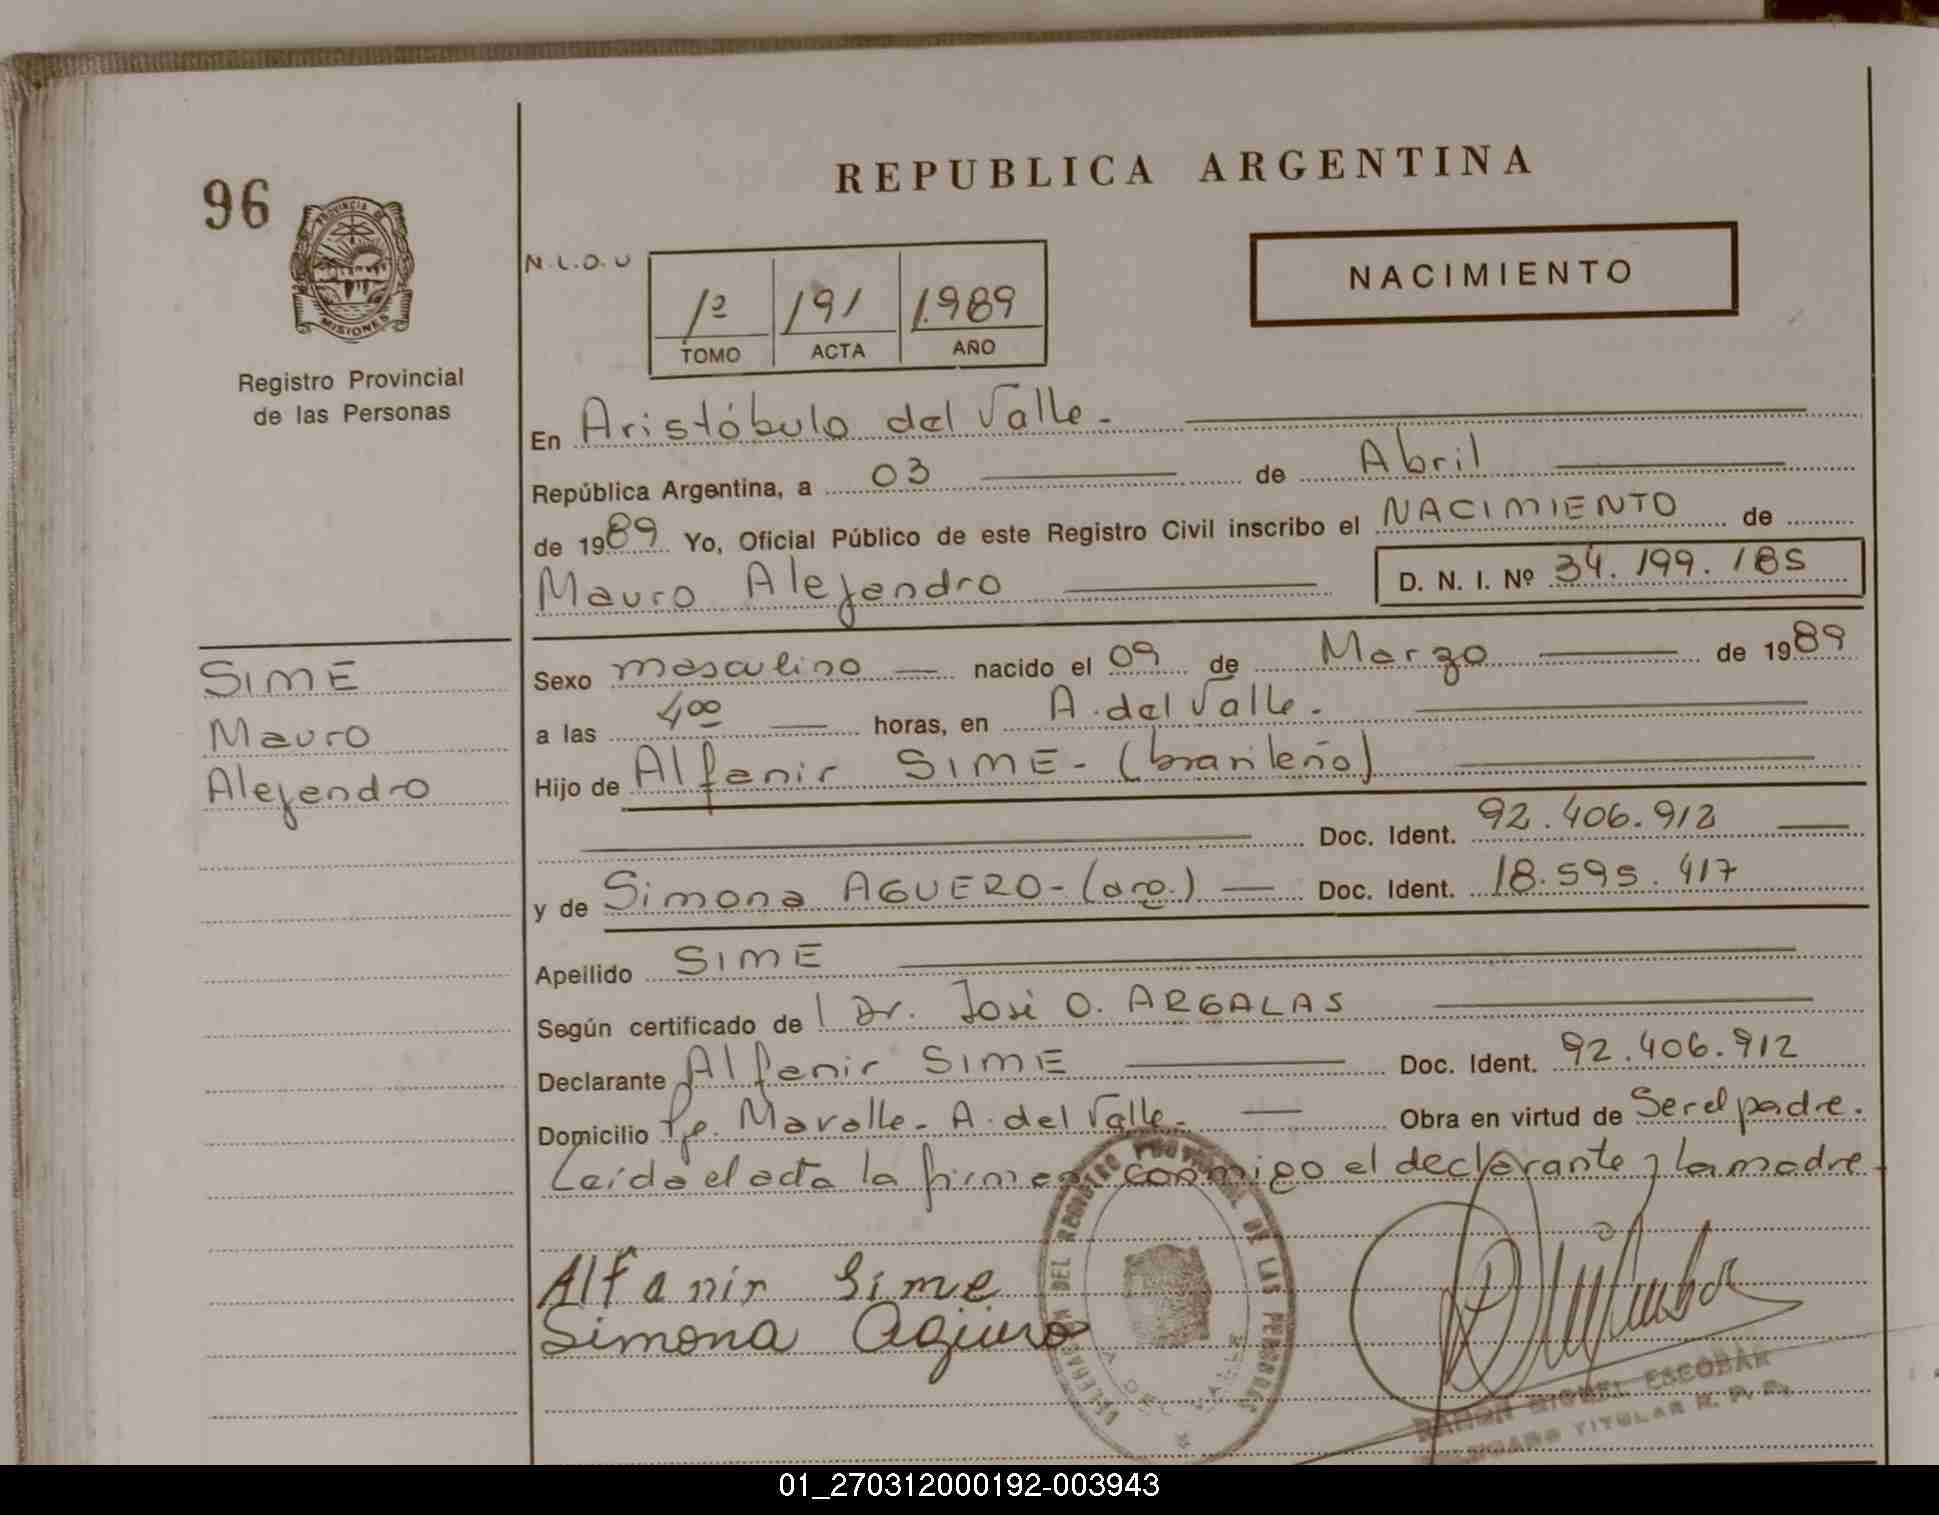 96
PROVINCIA DE
MISIONES
Registro Provincial
de las Personas
REPUBLICA ARGENTINA
NACIMIENTO
N.L.O.U
1º 191 1.989
TOMO ACTA AÑO
En Aristóbulo del Valle.
República Argentina, a 03 de Abril
de 1989 Yo, Oficial Público de este Registro Civil inscribo el NACIMIENTO de
Mauro Alejandro D. N. I. Nº 34.199.185
SIME
Mauro
Alejandro
Sexo masculino nacido el 09 de Marzo de 1989
a las 4 00 horas, en A. del Valle.
Hijo de Alfanir SIME - (brasileño)
Doc. Ident. 92.406.912
y de Simona AGUERO - (arg.) Doc. Ident. 18.595.417
Apellido SIME
Según certificado de l Dr. José O. ARGALAS
Declarante Alfanir SIME Doc. Ident. 92.406.912
Domicilio Pje. Maralle - A. del Valle. Obra en virtud de Ser el padre.
Leída el acta la firman conmigo el declarante y la madre
Alfanir Sime
Simona Aguero
DELEGACION DEL REGISTRO PROVINCIAL DE LAS PERSONAS
A. DEL VALLE
RAMON MIGUEL ESCOBAR
TITULAR R. P. P.
01_270312000192-003943